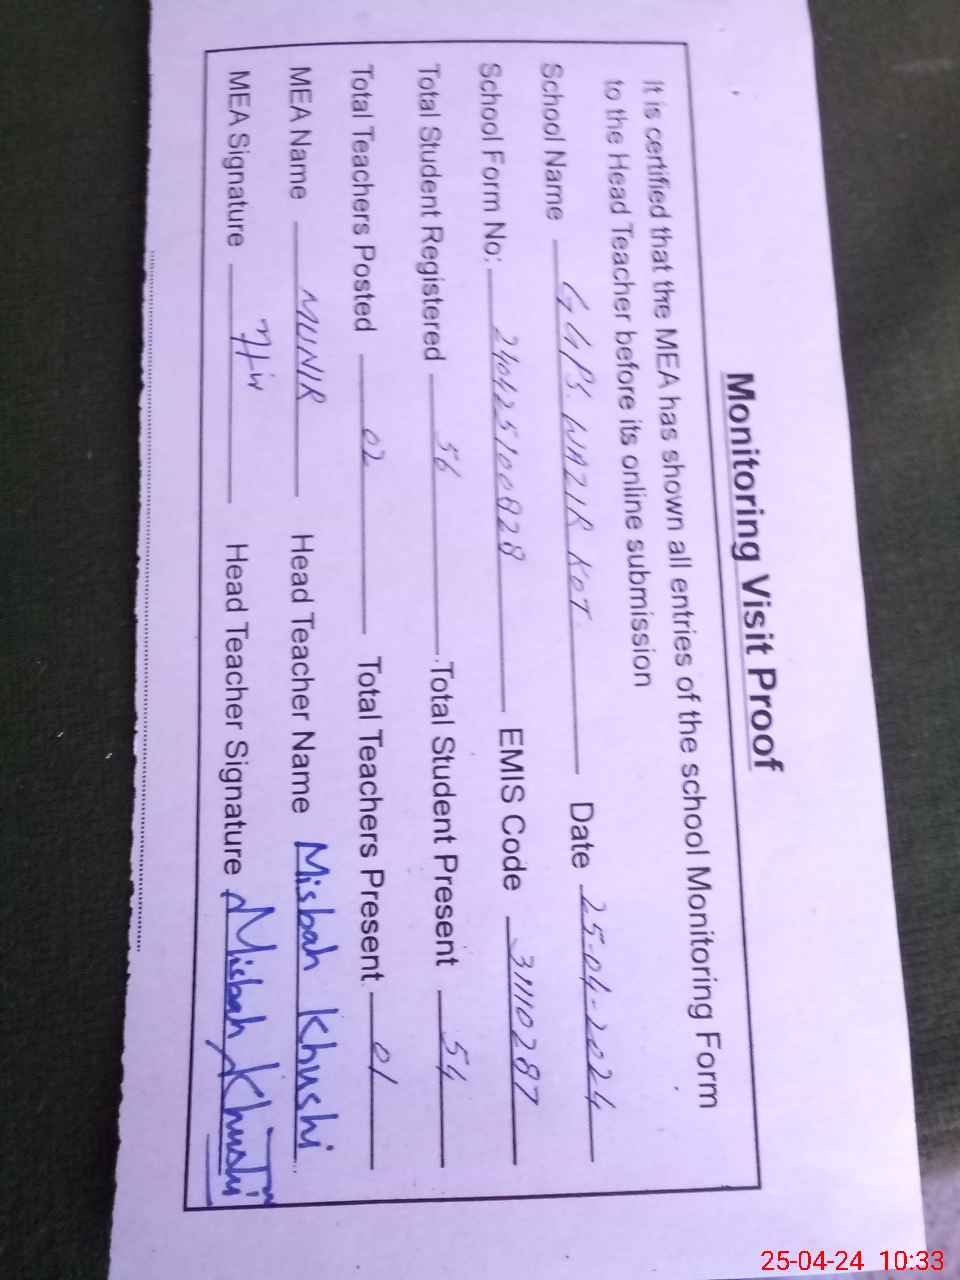 Monitoring Visit Proof
It is certified that the MEA has shown all entries of the school Monitoring Form
to the Head Teacher before its online submission
School Name GGPS. WAZIR KOT Date 25-04-2024
School Form No: 240425100828 EMIS Code 31110287
Total Student Registered 56 Total Student Present 54
Total Teachers Posted 02 Total Teachers Present 01
MEA Name MUNIR Head Teacher Name Misbah Khushi
MEA Signature Head Teacher Signature Misbah Khushi
25-04-24 10:33